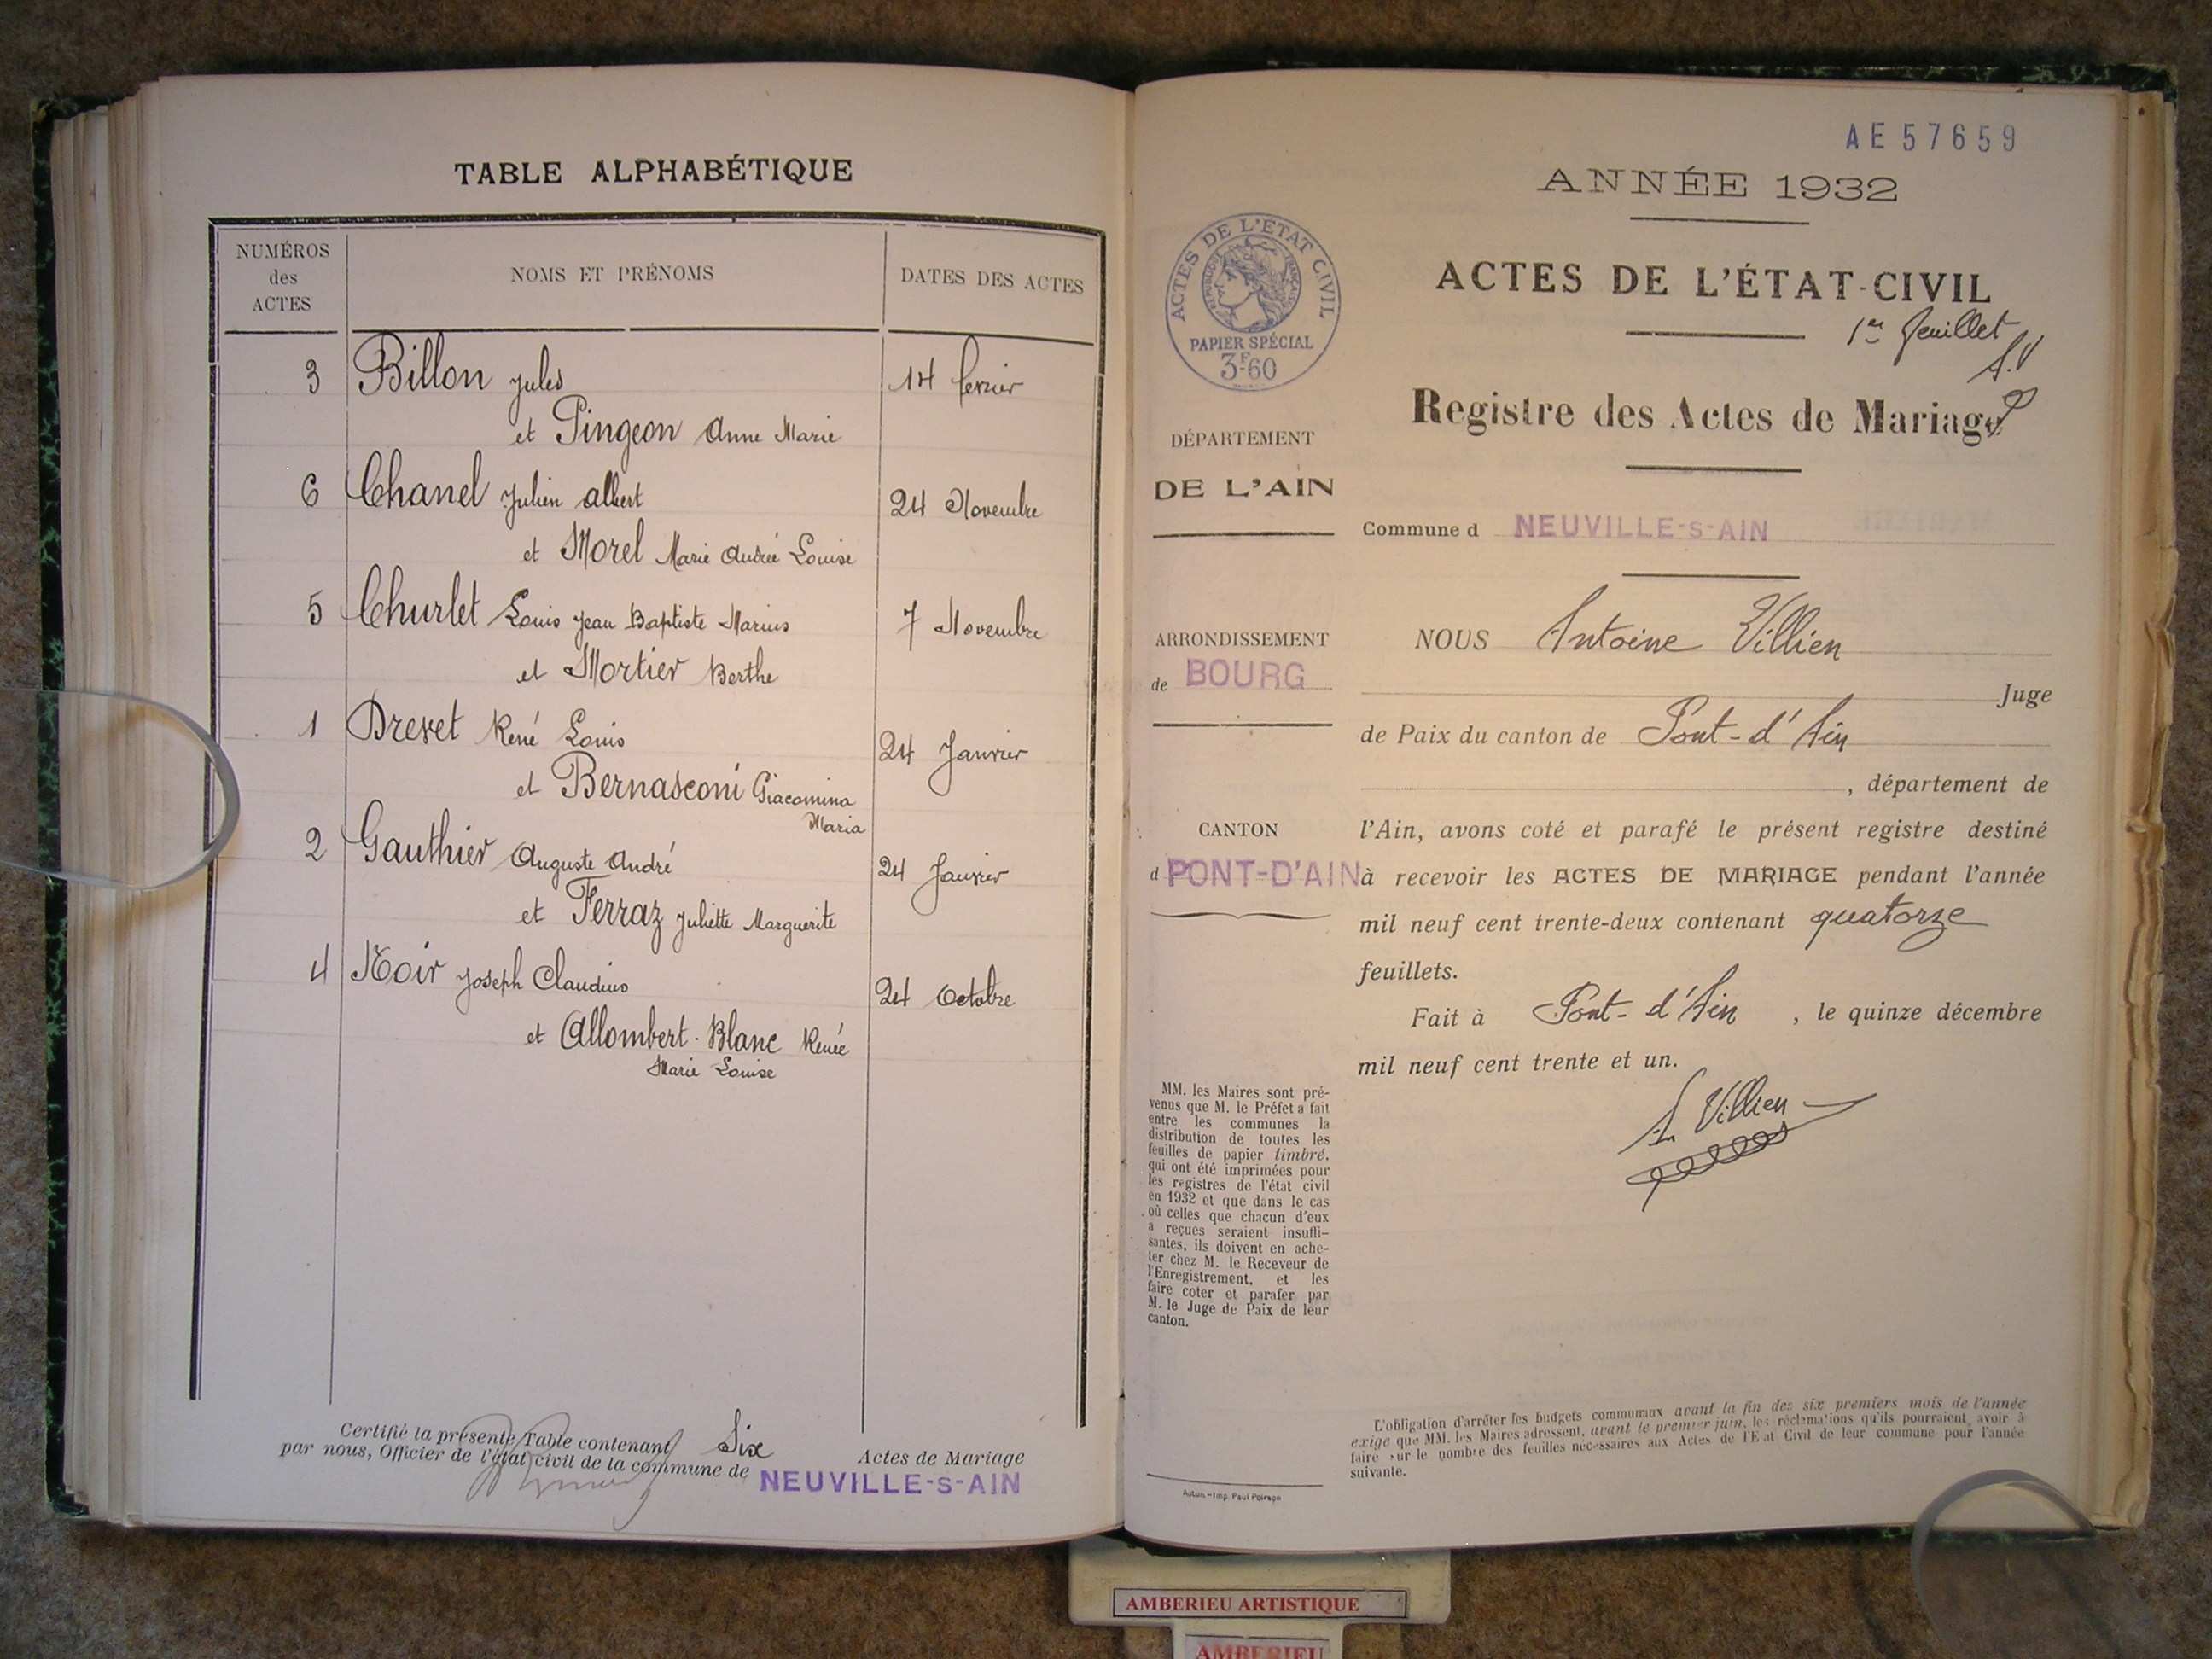 TABLE ALPHABÉTIQUE
NUMÉROS
des
ACTES
NOMS ET PRÉNOMS
DATES DES ACTES
3 Billon Jules 14 fevrier
et Pingeon Anne Marie
6 Chanel Julien Albert 24 Novembre
et Morel Marie Andrée Louise
5 Churlet Louis Jean Baptiste Marius 7 Novembre
et Mortier Berthe
1 Drevet René Louis 24 Janvier
et Bernasconi Giacomina
Maria
2 Gauthier Auguste André 24 Janvier
et Ferraz Juliette Marguerite
4 Noir Joseph Claudius 24 Octobre
et Allombert-Blanc Renée
Marie Louise
Certifié la présente Table contenant Six Actes de Mariage
par nous, Officier de l'état civil de la commune de NEUVILLE-S-AIN
AE57659
ANNÉE 1932
ACTES DE L'ÉTAT-CIVIL
1er feuillet
A.V
Registre des Actes de Mariage
ACTES DE L'ÉTAT CIVIL
RÉPUBLIQUE FRANÇAISE
PAPIER SPÉCIAL
3F60
DÉPARTEMENT
DE L'AIN
ARRONDISSEMENT
de BOURG
CANTON
d PONT-D'AIN
MM. les Maires sont pré-
venus que M. le Préfet a fait
entre les communes la
distribution de toutes les
feuilles de papier timbré,
qui ont été imprimées pour
les registres de l'état civil
en 1932 et que dans le cas
où celles que chacun d'eux
a reçues seraient insuffi-
santes, ils doivent en ache-
ter chez M. le Receveur de
l'Enregistrement, et les
faire coter et parafer par
M. le Juge de Paix de leur
canton.
Autun.-Imp. Paul Poirson
Commune d NEUVILLE-S-AIN
NOUS Antoine Villien
Juge
de Paix du canton de Pont-d'Ain
, département de
l'Ain, avons coté et parafé le présent registre destiné
à recevoir les ACTES DE MARIAGE pendant l'année
mil neuf cent trente-deux contenant quatorze
feuillets.
Fait à Pont-d'Ain, le quinze décembre
mil neuf cent trente et un.
A. Villien
L'obligation d'arrêter les budgets communaux avant la fin des six premiers mois de l'année
exige que MM. les Maires adressent, avant le premier juin, les réclamations qu'ils pourraient avoir à
faire sur le nombre des feuilles nécessaires aux Actes de l'Etat Civil de leur commune pour l'année
suivante.
AMBERIEU ARTISTIQUE
AMBERIEU